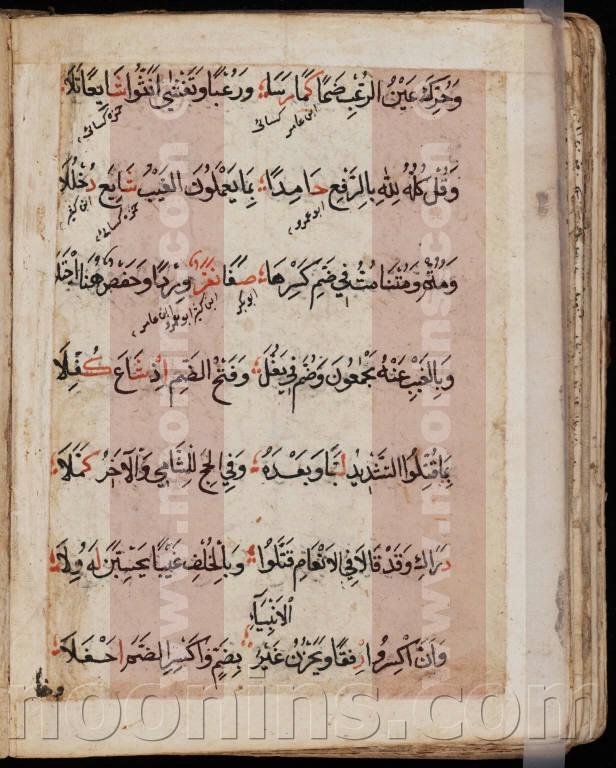 وَحُرِّكَ عَيْنُ الرُّعْبِ ضَمًّا كَمَا رَسَا ؛ وَرُعْبًا وَتَغْشَى أَنَّثُوا شَايِعًا تَلَا
ابن عامر كسائي حمزه كسائي
وَقُلْ كُلُّهُ لِلَّهِ بِالرَّفْعِ حَامِدًا ؛ بِمَا يَعْمَلُونَ الْغَيْبُ شَايَعَ دُخْلُلَا
ابو عمرو حمزه كسائي ابن كثير
وَمُتُّمْ وَمُتْنَا مُتُّ فِي ضَمِّ كَسْرِهَا ؛ صَفَا نَفَرٌ وِرْدًا وَحَفْصٌ هُنَا اجْتَلَا
ابو بكر ابن كثير ابو عمرو ابن عامر
وَبِالْغَيْبِ عَنْهُ يَجْمَعُونَ وَضُمَّ فِي يَغُلَّ ؛ وَفَتْحُ الضَّمِّ إِذْ شَاعَ كُفِّلَا
بِمَا قُتِلُوا التَّشْدِيدُ لَبَّى وَبَعْدَهُ ؛ وَفِي الْحَجِّ لِلشَّامِي وَالْآخِرُ كَمَّلَا
دَرَاكِ وَقَدْ قَالَا فِي الْأَنْعَامِ قَتَّلُوا ؛ وَبِالْخُلْفِ غَيْبًا يَحْسَبَنَّ لَهُ وَلَا
الْأَنْبِيَاءِ
وَأَنَّ اكْسِرُوا رِفْقًا وَيَحْزُنُ غَيْرَ ؛ بِضَمٍّ وَاكْسِرِ الضَّمَّ أَحْفَلَا
وخا
www.noonins.com
www.noonins.com
noonins.com